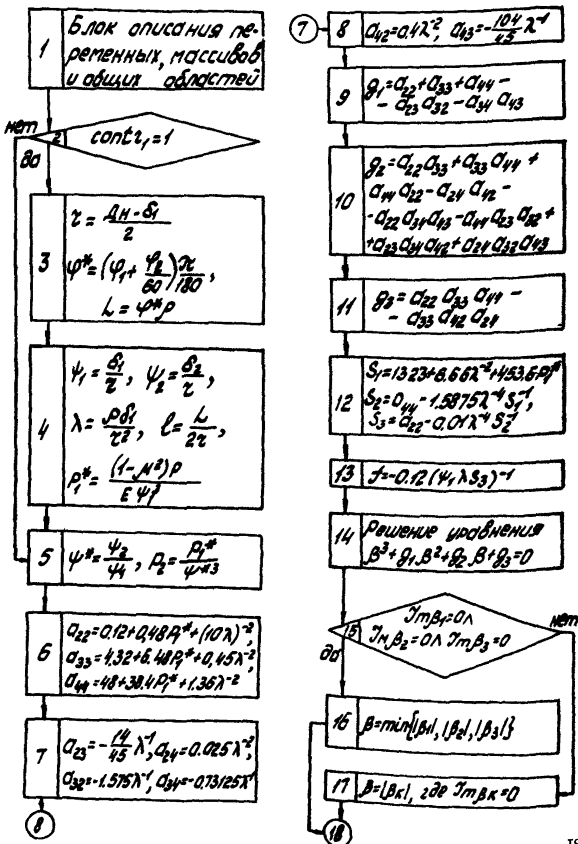 1
Блок описания пе-
ременных, массивов
и общих областей
нет
2
contr₁=1
да
3
r = (Дн-δ₁)/2
φ* = (φ₁+φ₂/60)π/180,
L = φ*ρ
4
ψ₁ = δ₁/r, ψ₂ = δ₂/r,
λ = ρδ₁/r², ℓ = L/2r,
P₁* = (1-μ²)P/Eψ₁³
5
ψ* = ψ₂/ψ₁, P₂ = P₁*/ψ*³
6
a₂₂=0.12+0,48P₁*+(10λ)⁻²,
a₃₃=4.32+6.48P₁*+0,45λ⁻²,
a₄₄=48+38.4P₁*+1.36λ⁻²
7
a₂₃=-14/45 λ⁻¹, a₂₄=0.025λ⁻²,
a₃₂=-1.575λ⁻¹, a₃₄=-0,73125λ⁻¹
8
7
8
a₄₂=0.4λ⁻², a₄₃=-104/45 λ⁻¹
9
g₁=a₂₂+a₃₃+a₄₄-
-a₂₃a₃₂-a₃₄a₄₃
10
g₂=a₂₂a₃₃+a₃₃a₄₄+
a₄₄a₂₂-a₂₄a₄₂-
-a₂₂a₃₄a₄₃-a₄₄a₂₃a₃₂+
+a₂₃a₃₄a₄₂+a₂₄a₃₂a₄₃
11
g₃=a₂₂a₃₃a₄₄-
-a₃₃a₄₂a₂₄
12
S₁=1323+8.66λ⁻²+453.6P₁*
S₂=a₄₄-1.5875λ⁻⁴S₁⁻¹,
S₃=a₂₂-0.01λ⁻⁴S₂⁻¹
13
f=-0.12(ψ₁λS₃)⁻¹
14
Решение уравнения
β³+g₁β²+g₂β+g₃=0
15
Imβ₁=0∧
Imβ₂=0∧Imβ₃=0
нет
да
16
β=min{|β₁|,|β₂|,|β₃|}
17
β=|βκ|, где Imβκ=0
18